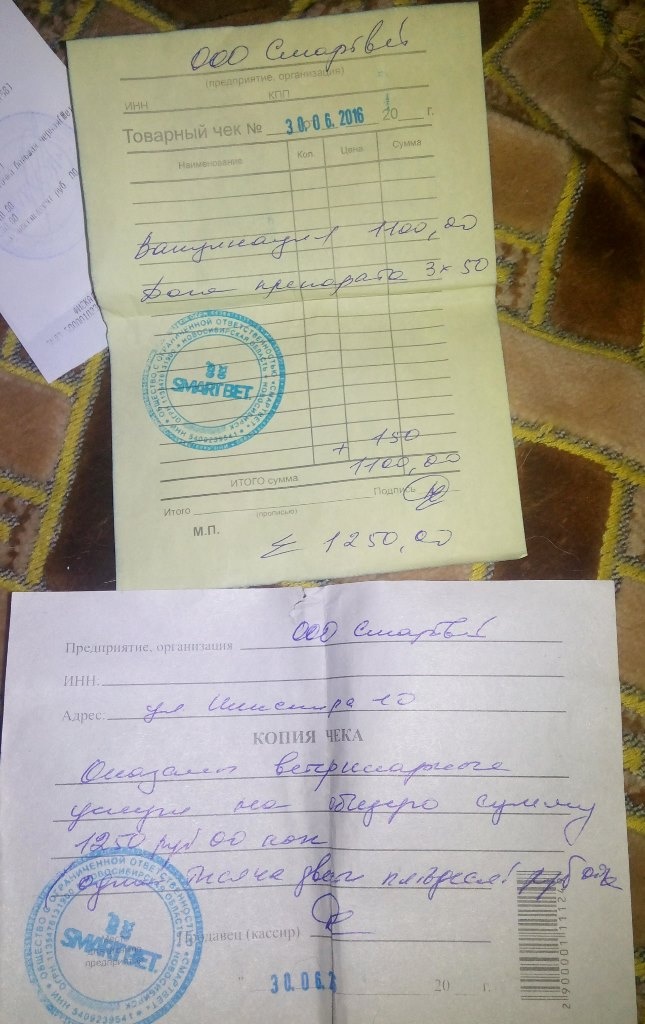 ООО Смартвет
(предприятие, организация)
ИНН КПП
Товарный чек № 30.06.2016 20 г.
Наименование Кол. Цена Сумма
Вакцинация 1100,00
Доза препарата 3х50
ОБЩЕСТВО С ОГРАНИЧЕННОЙ ОТВЕТСТВЕННОСТЬЮ «СМАРТВЕТ»
НОВОСИБИРСКАЯ ОБЛАСТЬ НОВОСИБИРСК
ИНН 5409239541
SMARTВЕТ.
+ 150
1100,00
ИТОГО сумма
Итого Подпись
(прописью)
М.П.
Σ 1250,00
Предприятие, организация ООО Смартвет
ИНН.
Адрес: ул 10
КОПИЯ ЧЕКА
Оказаны ветеринарные
услуги на общую сумму
1250 руб 00 коп
одна тысяча двести пятьдесят руб 00к
ОБЩЕСТВО С ОГРАНИЧЕННОЙ ОТВЕТСТВЕННОСТЬЮ «СМАРТВЕТ»
НОВОСИБИРСКАЯ ОБЛАСТЬ НОВОСИБИРСК
ИНН 5409239541
SMARTВЕТ.
Продавец (кассир)
30.06.2 20 г.